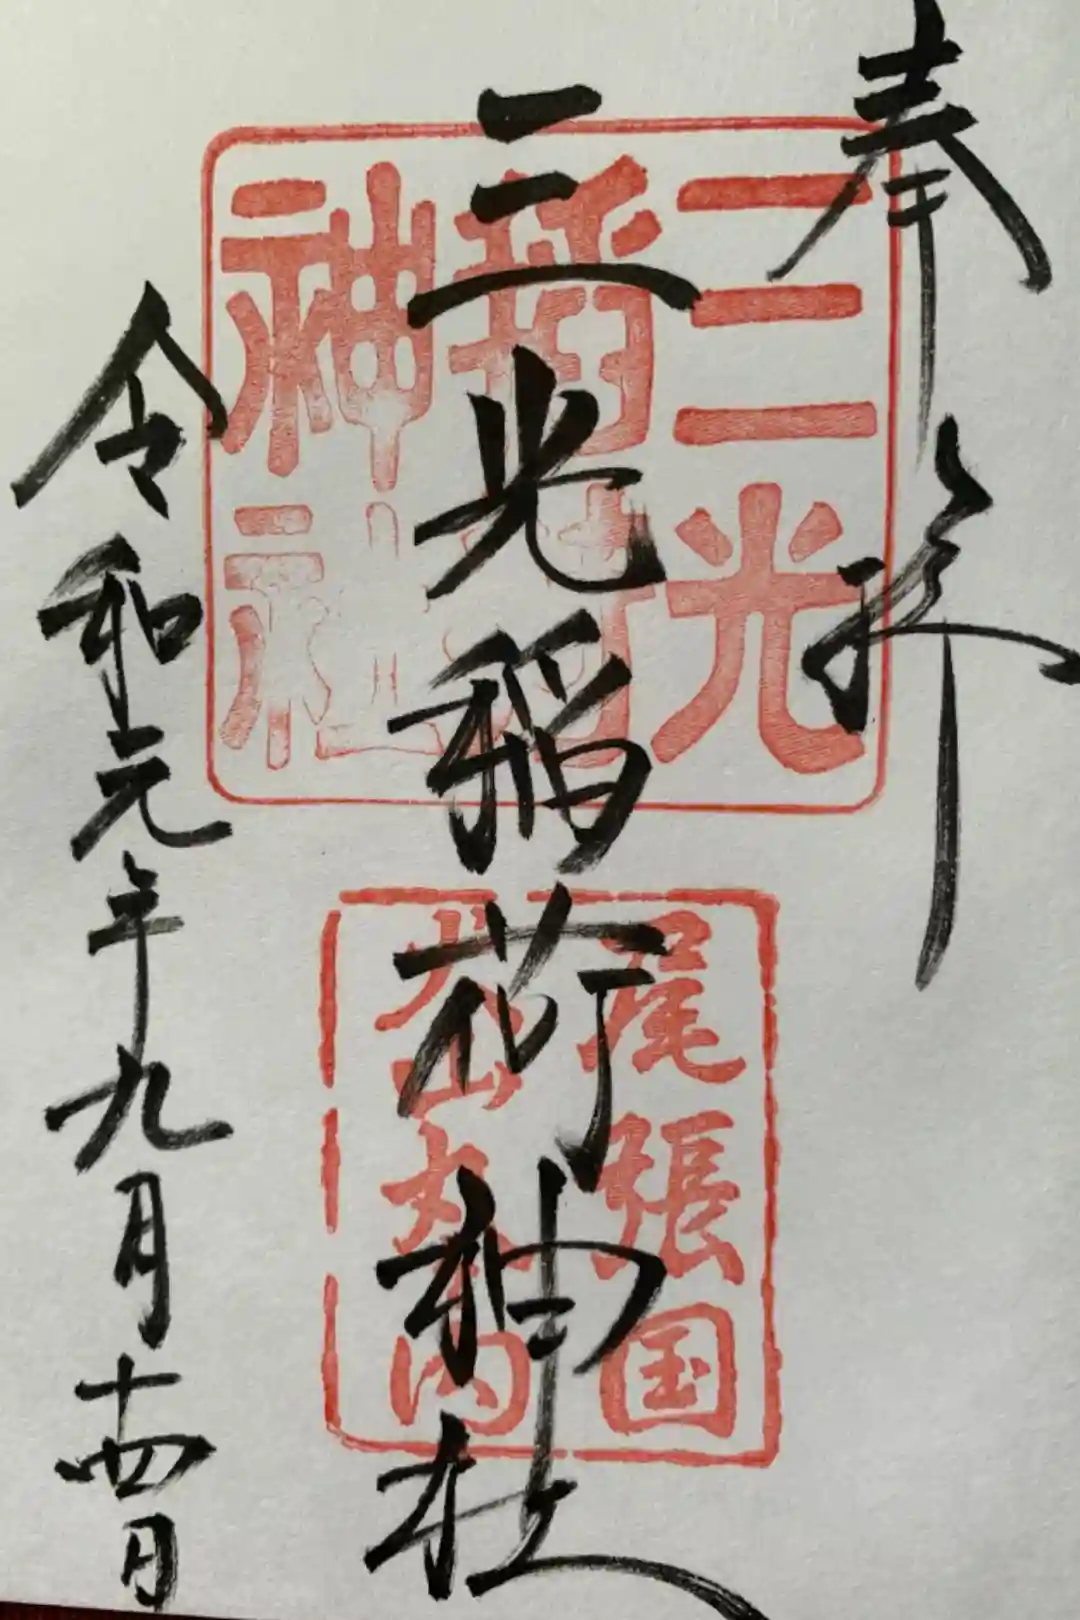 奉拝
三光稲荷神社
令和元年九月十四日
三光
稲荷
神社
尾張国
犬山丸之内